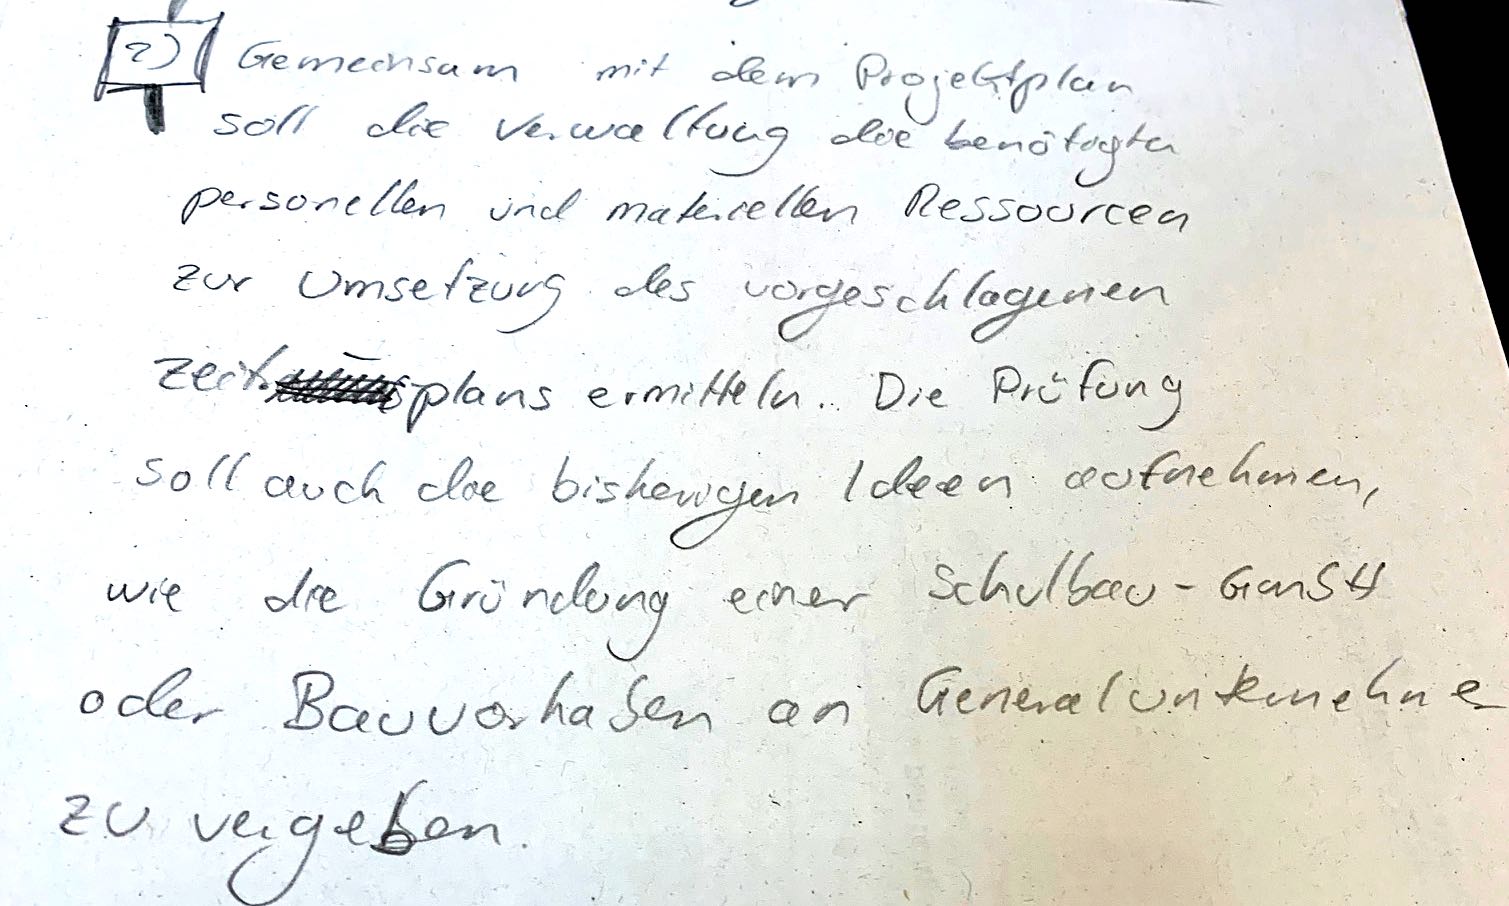 2) Gemeinsam mit dem Projektplan
soll die Verwaltung die benötigten
personellen und materiellen Ressourcen
zur Umsetzung des vorgeschlagenen
Zeitplans ermitteln. Die Prüfung
soll auch die bisherigen Ideen aufnehmen,
wie die Gründung einer Schulbau-GmbH
oder Bauvorhaben an Generalunternehmer
zu vergeben.